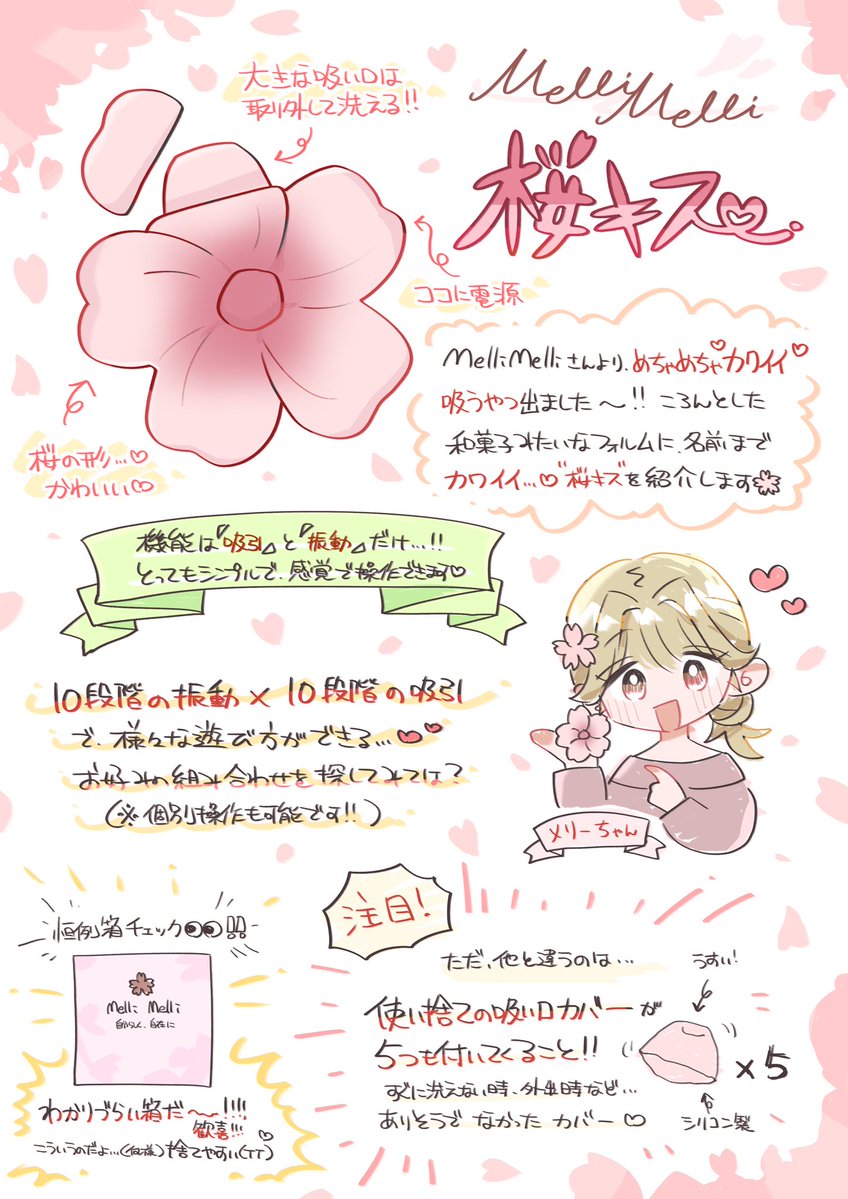 大きな吸い口は
取り外して洗える!!
Melli Melli
桜キス
ココに電源
桜の形…♡
かわいい♡
Melli Melliさんより、めちゃめちゃカワイイ♡
吸うやつ出ました〜!! ころんとした
和菓子みたいなフォルムに、名前まで
カワイイ…♡"桜キス"を紹介します🌸
機能は『吸引』と『振動』だけ…!!
とってもシンプルで、感覚で操作できます♡
10段階の振動×10段階の吸引
で、様々な遊び方ができる…♥♥
お好みの組み合わせを探してみては?
(※個別操作も可能です!!)
メリーちゃん
恒例箱チェック👀!!
Melli Melli
自分らしく、自在に
わかりづらい箱だ〜!!!!
歓喜!!!
こういうのだよ…(何様)捨てやすい(TT)♡
注目!
ただ、他と違うのは…
うすい!
使い捨ての吸い口カバーが
5つも付いてくること!!
×5
すぐに洗えない時、外出時など…
ありそうでなかったカバー♡
シリコン製